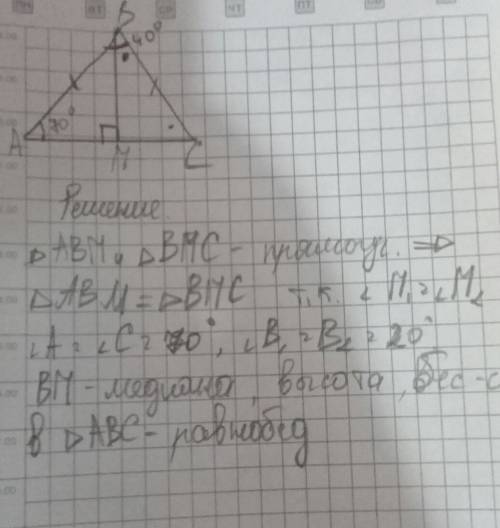 B
40°
70°
A M C
Решение.
△ABM и △BMC - прямоуг. ⇒
△ABM = △BMC т.к. ∠M₁ = ∠M₂
∠A = ∠C = 70°, ∠B₁ = B₂ = 20°
BM - медиана, высота, бес-са
в △ABC - равнобед